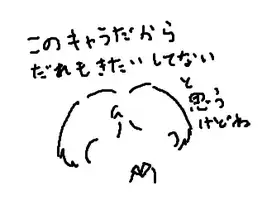 このキャラだから
だれもきたいしてない
と
思う
けどね